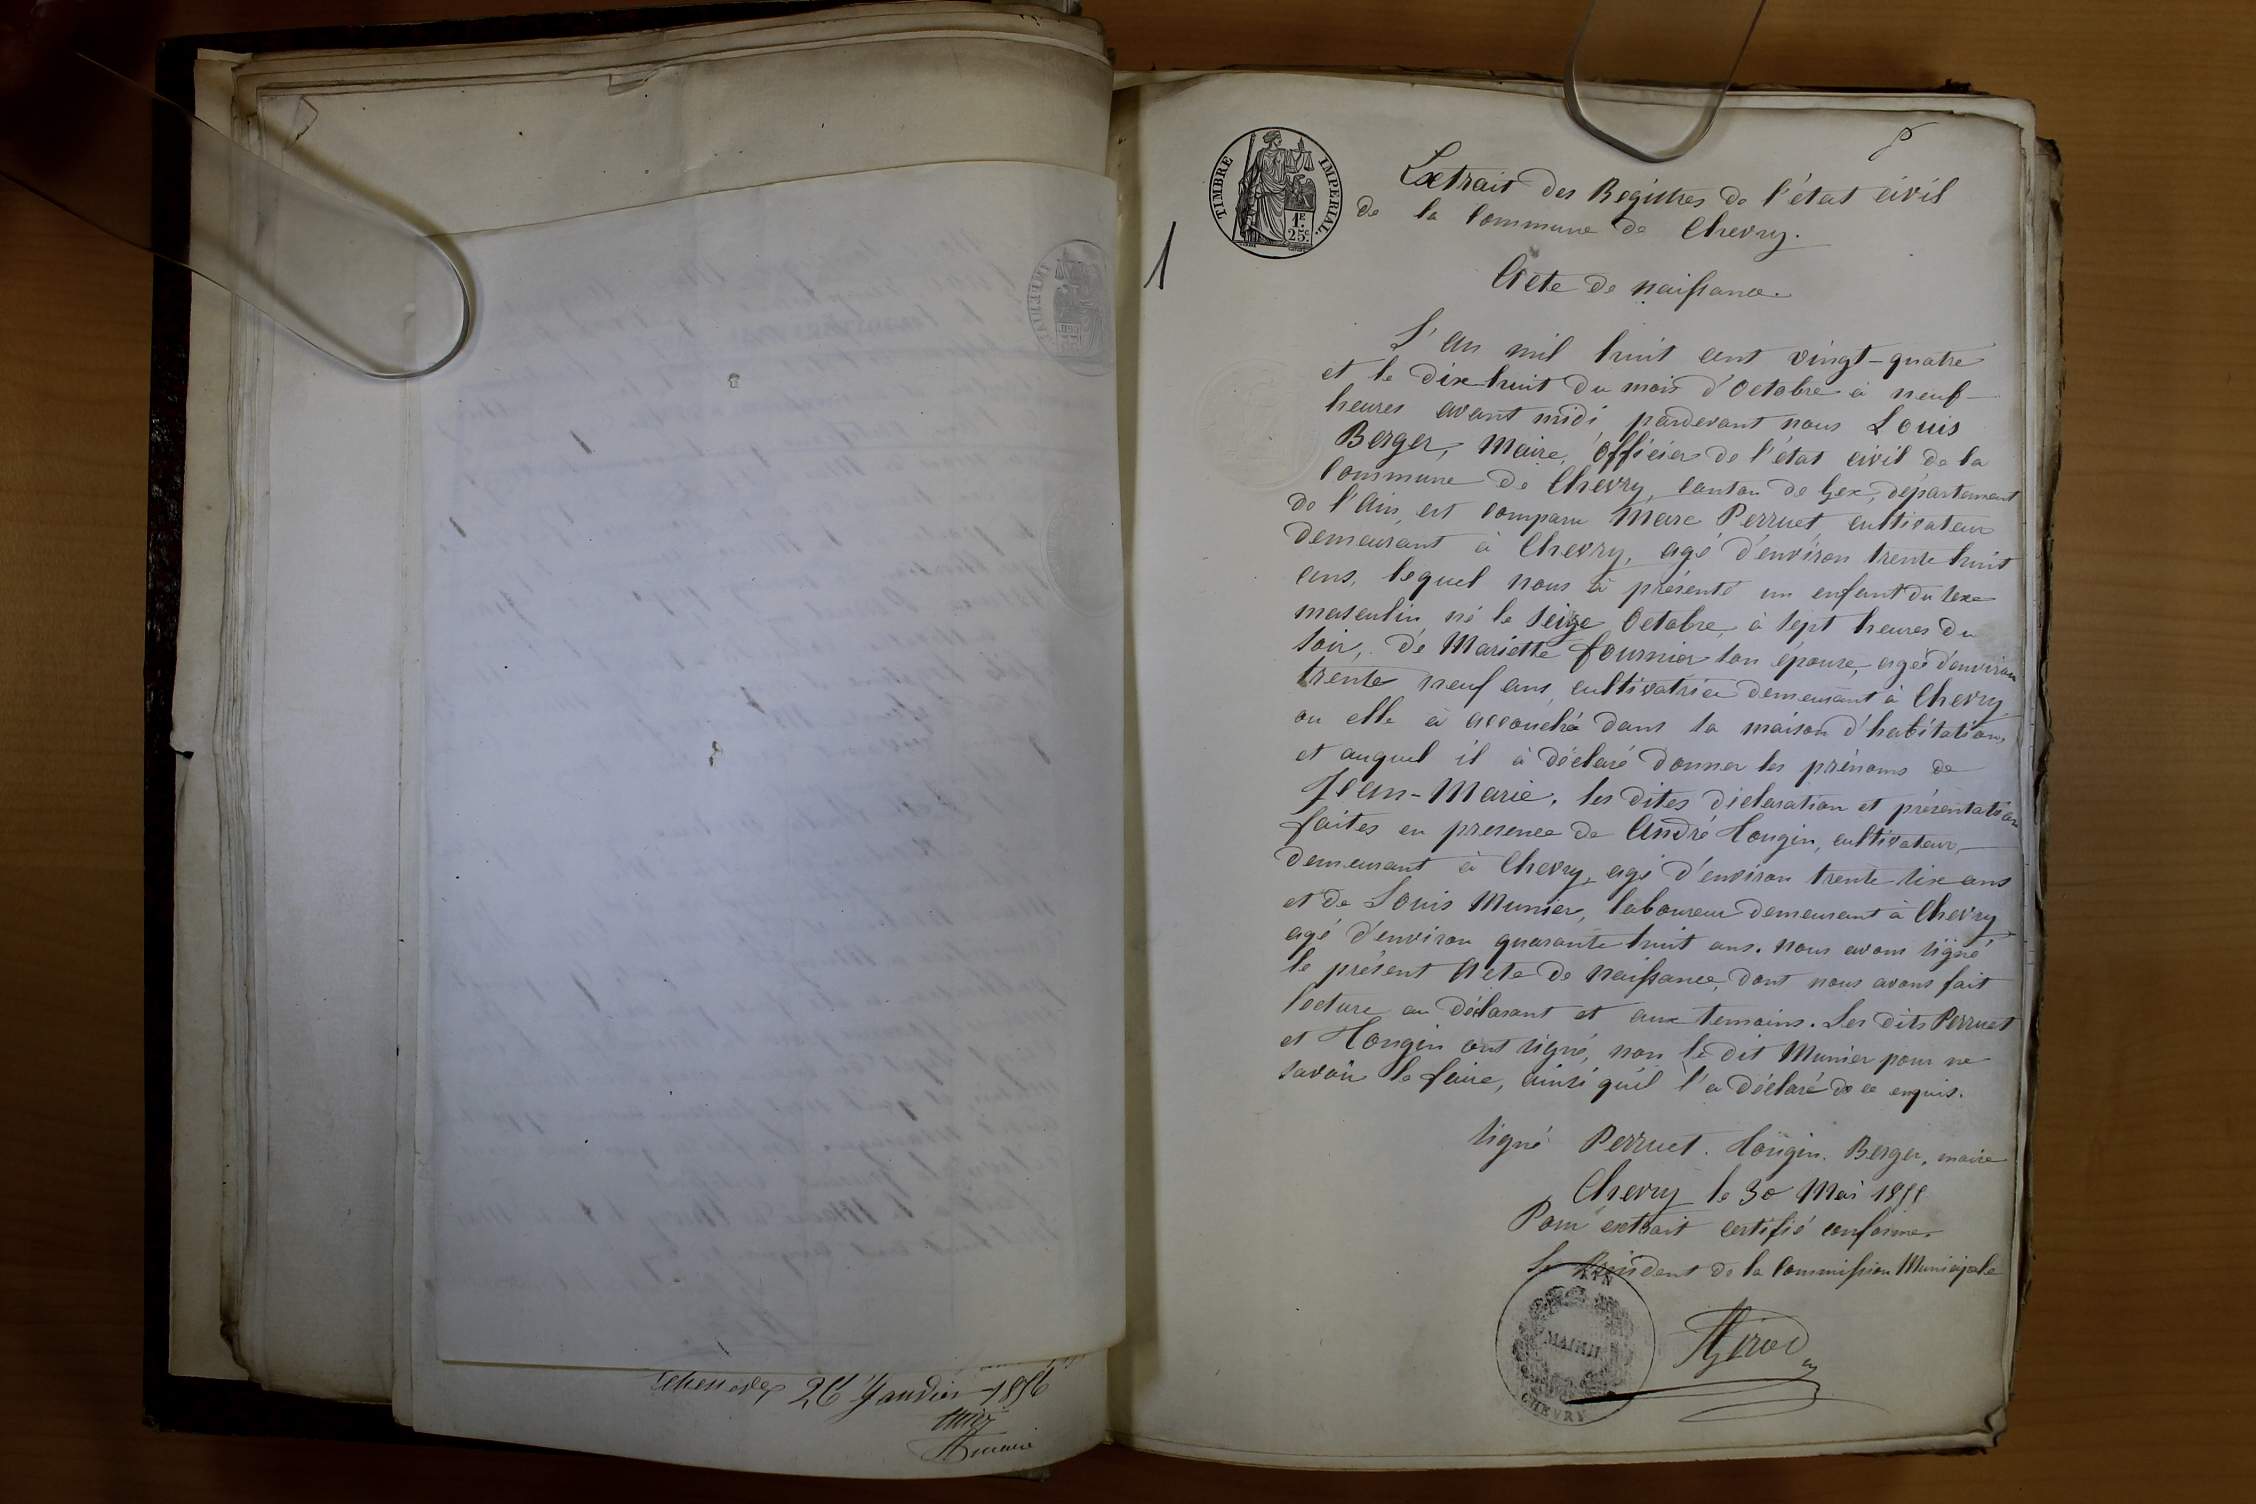 26 Janvier 1856
TIMBRE IMPERIAL.
1F
25c
Extrait des Registres de l'état civil
de la Commune de Chevry.
1
Acte de naissance.
L'an mil huit cent vingt-quatre
et le dix huit du mois d'Octobre à neuf
heures avant midi, pardevant nous Louis
Berger, Maire, Officier de l'état civil de la
Commune de Chevry, canton de Gex, département
de l'Ain, est comparu Marc Perruet, cultivateur
demeurant à Chevry, agé d'environ trente huit
ans, lequel nous à présenté un enfant du sexe
masculin, né le seize Octobre, à sept heures du
soir, de Mariette Fournier son épouse, agée d'environ
trente neuf ans, cultivatrice demeurant à Chevry
ou elle à accouché dans sa maison d'habitation,
et auquel il à déclaré donner les prénoms de
Jean-Marie. Les dites déclaration et présentation
faites en presence de André Hougin, cultivateur,
demeurant à Chevry, agé d'environ trente six ans
et de Louis Munier, laboureur demeurant à Chevry
agé d'environ quarante huit ans. Nous avons signé
le présent Acte de Naissance, dont nous avons fait
lecture au déclarant et aux temoins. Les dits Perruet
et Hougin ont signé, non le dit Munier pour ne
savoir le faire, ainsi qu'il l'a déclaré de ce enquis.
Signé Perruet. Hougin. Berger, maire
Chevry le 30 Mai 1855
Pour extrait certifié conforme
Le Président de la Commission Municipale
AIN
MAIRIE
CHEVRY
Girod